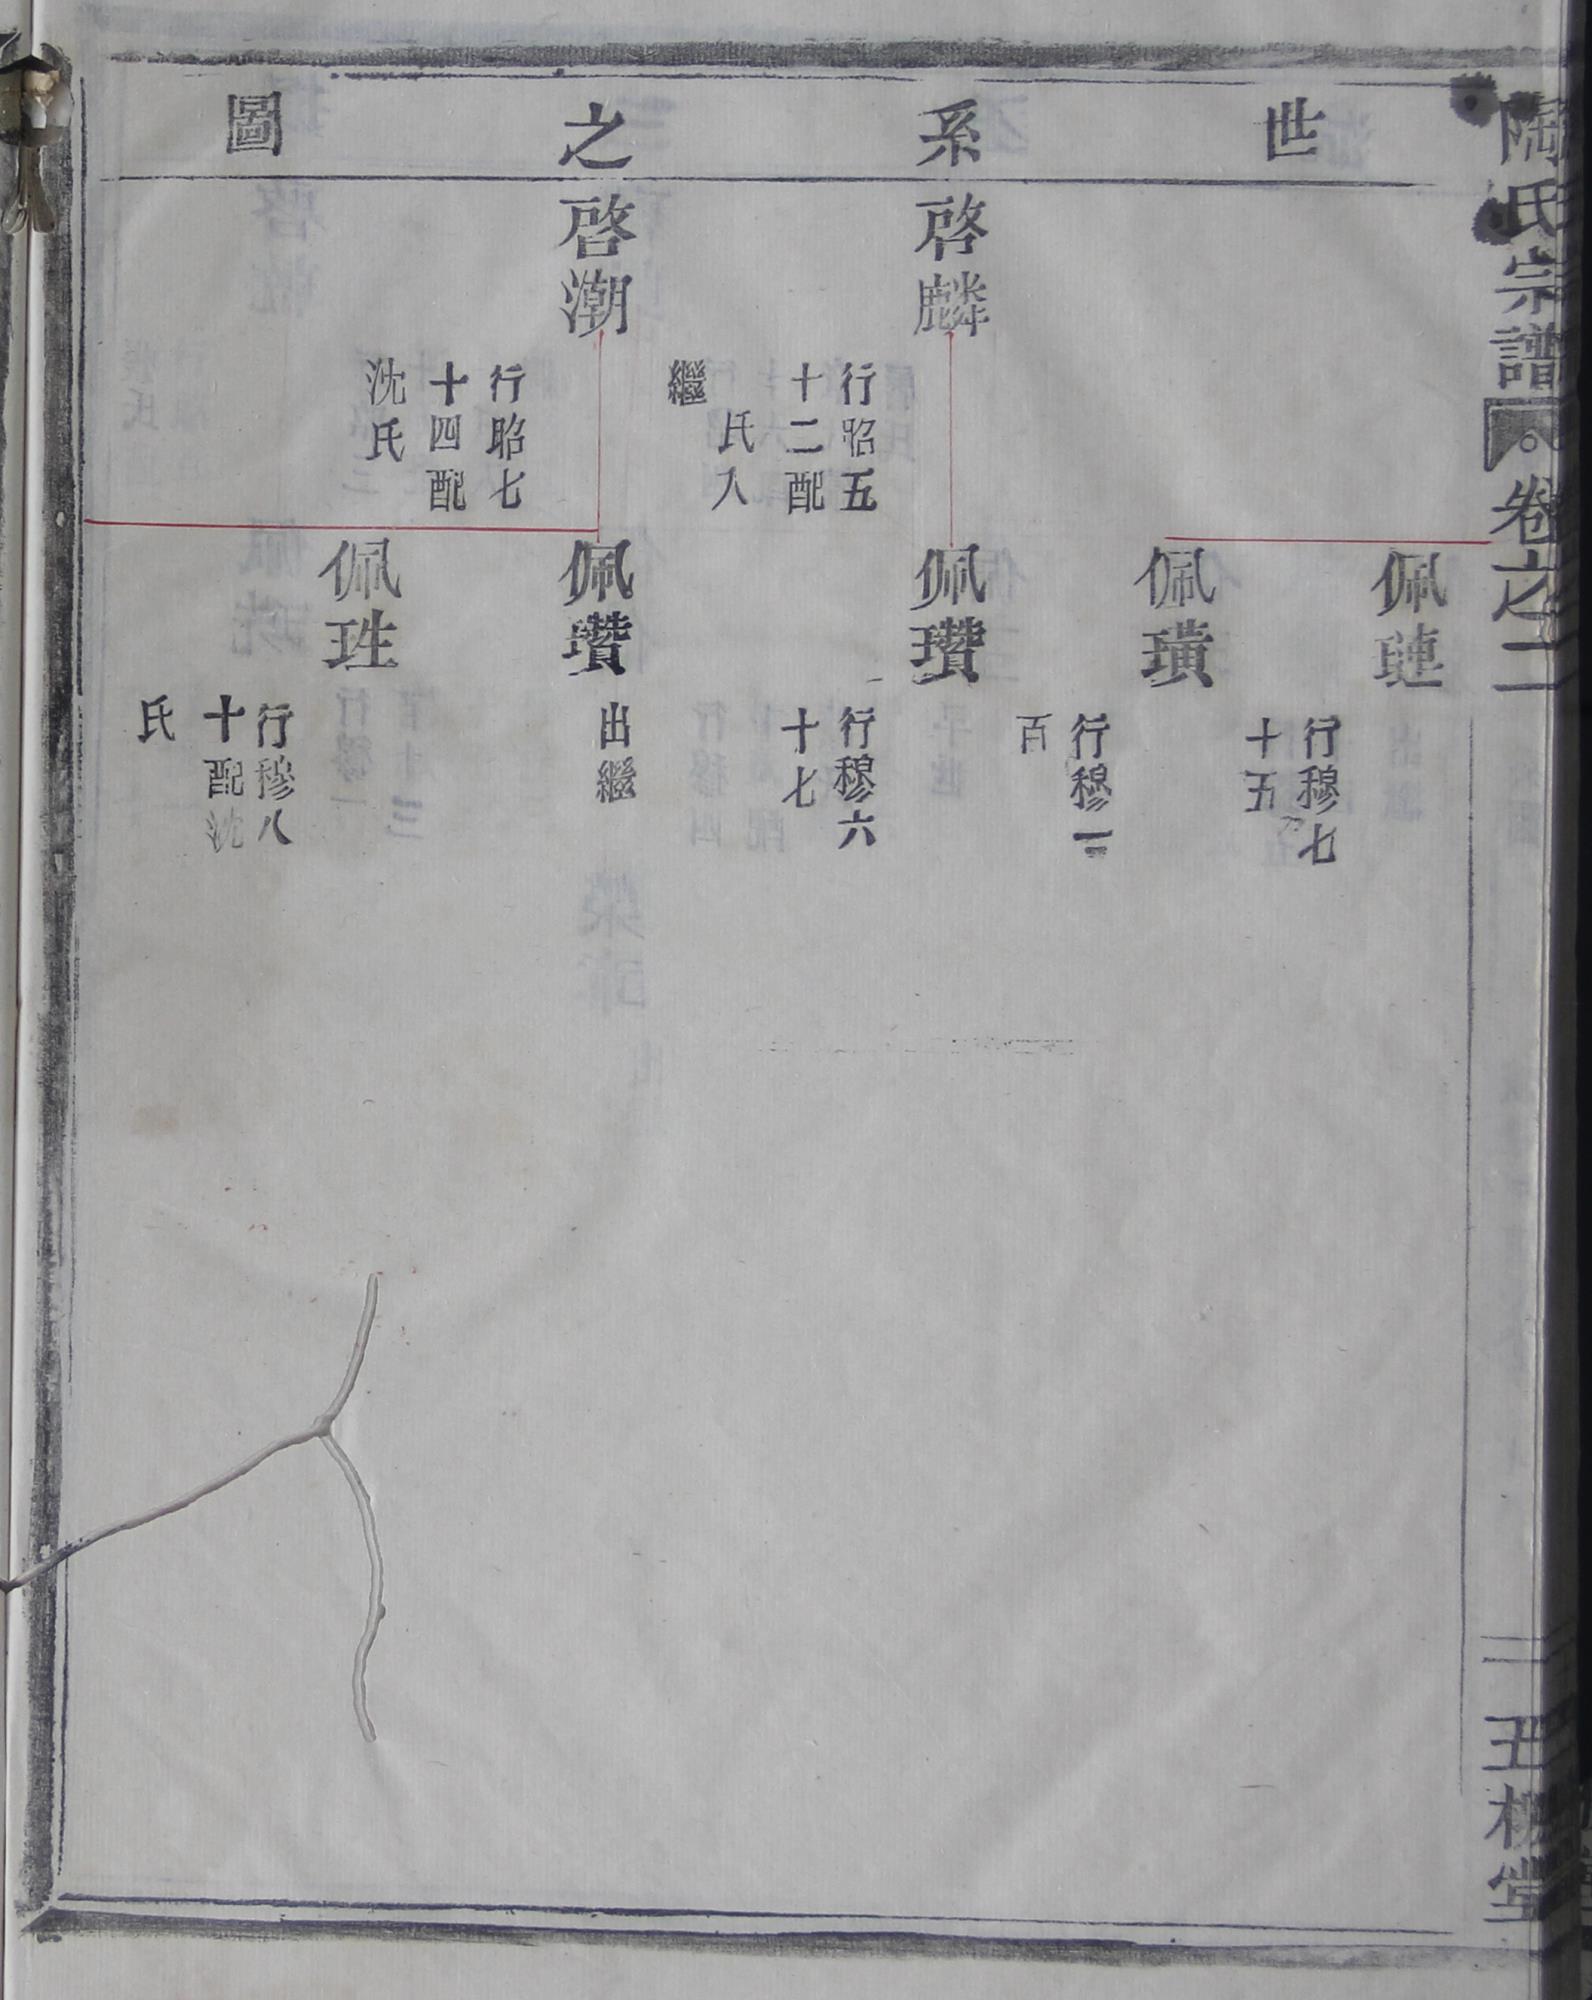 陶氏宗譜
卷之二
五柳堂
世系之圖
啓麟
行昭五
十二配
氏入
繼
啓潮
行昭七
十四配
沈氏
佩璉
行穆七
十五
佩璜
行穆一
百
佩瓚
行穆六
十七
佩瓚
出繼
佩珄
行穆八
十配沈
氏